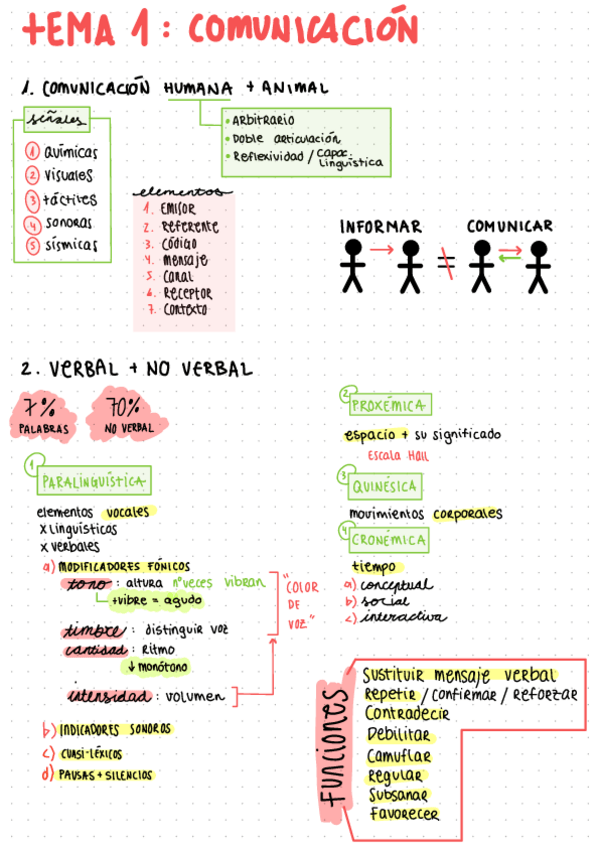 TEMA 1: COMUNICACIÓN
1. COMUNICACIÓN HUMANA + ANIMAL
señales
1 químicas
2 visuales
3 táctiles
4 sonoras
5 sísmicas
• ARBITRARIO
• Doble articulación
• Reflexividad / Capac. Lingüística
elementos
1. EMISOR
2. Referente
3. Código
4. Mensaje
5. Canal
6. Receptor
7. Contexto
INFORMAR ≠ COMUNICAR
2. VERBAL + NO VERBAL
7% PALABRAS
70% NO VERBAL
1 PARALINGUÍSTICA
elementos vocales
X lingüísticos
X verbales
a) MODIFICADORES FÓNICOS
tono : altura nº veces vibran
+vibre = agudo
timbre : distinguir voz
cantidad : Ritmo
↓ monótono
intensidad : volumen
"COLOR DE VOZ"
b) INDICADORES SONOROS
c) CUASI-LÉXICOS
d) PAUSAS + SILENCIOS
2 PROXÉMICA
espacio + su significado
Escala Hall
3 QUINÉSICA
movimientos corporales
4 CRONÉMICA
tiempo
a) conceptual
b) social
c) interactiva
Funciones
Sustituir mensaje verbal
Repetir / confirmar / reforzar
Contradecir
Debilitar
Camuflar
Regular
Subsanar
Favorecer